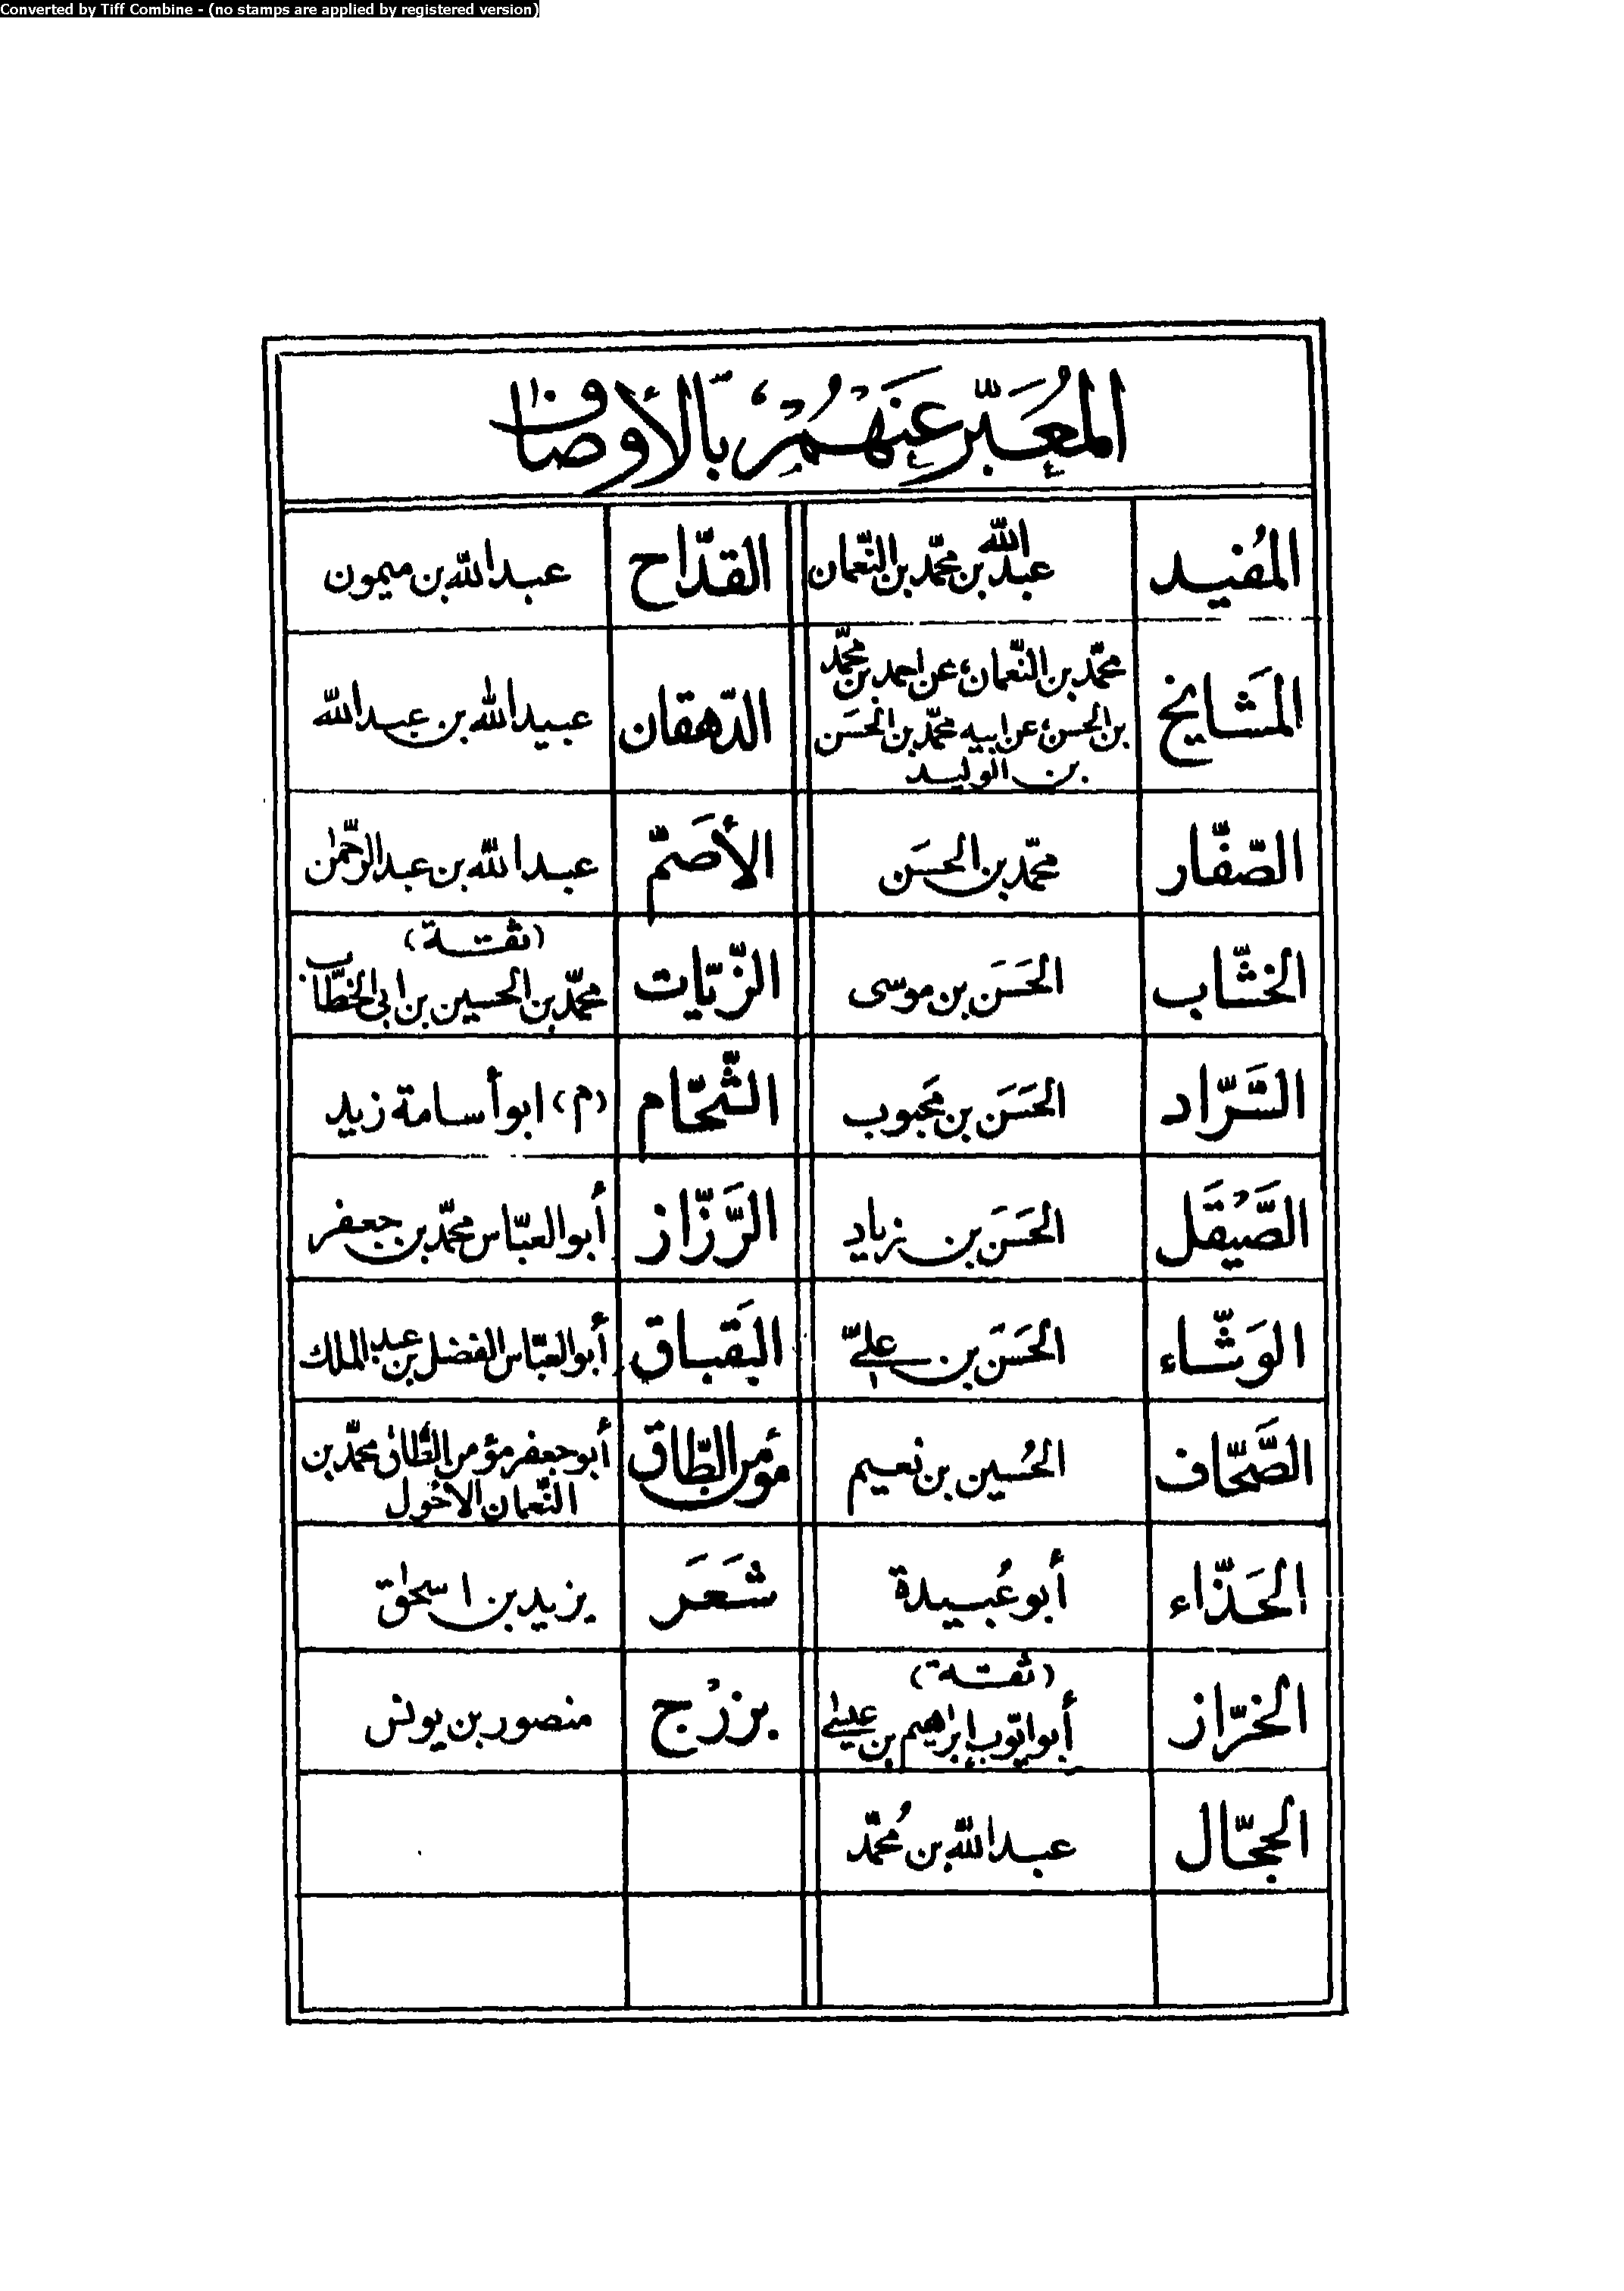 Converted by Tiff Combine - (no stamps are applied by registered version)
المُعَبَّر عَنْهُمْ بِالأَوصٰاف
المُفيد عبد الله بن محمّد بن النّعمان القدّاح عبد الله بن ميمون
المَشَايخ محمّد بن النّعمان، عن احمد بن محمّد
بن الحسن، عن ابيه محمّد بن الحسَن
بن الوليد الدّهقان عبيد الله بن عبد الله
الصّفّار محمّد بن الحسَن الأصَمّ عبد الله بن عبد الرّحمٰن
الخشّاب الحَسَن بن موسى الزّيّات (ثقة)
محمّد بن الحسين بن ابى الخطّاب
السَّرّاد الحَسَن بن مَحبوب الشّحّام (م) ابو أسامة زيد
الصَّيْقَل الحَسَن بن زياد الرَّزّاز أبو العبّاس محمّد بن جعفر
الوَشّاء الحَسَن بن علىّ البَقباق أبو العبّاس الفضل بن عبد الملك
الصَّحّاف الحُسين بن نعيم مؤمن الطّاق أبو جعفر مؤمن الطّاق محمّد بن
النّعمان الأحْول
الحَذّاء أبو عُبيدة شَعَر يزيد بن اسحٰق
الخرّاز (ثقة)
أبو ايّوب إبراهيم بن عيسٰى بزرْج منصور بن يونس
الحجّال عبد الله بن مُحمّد